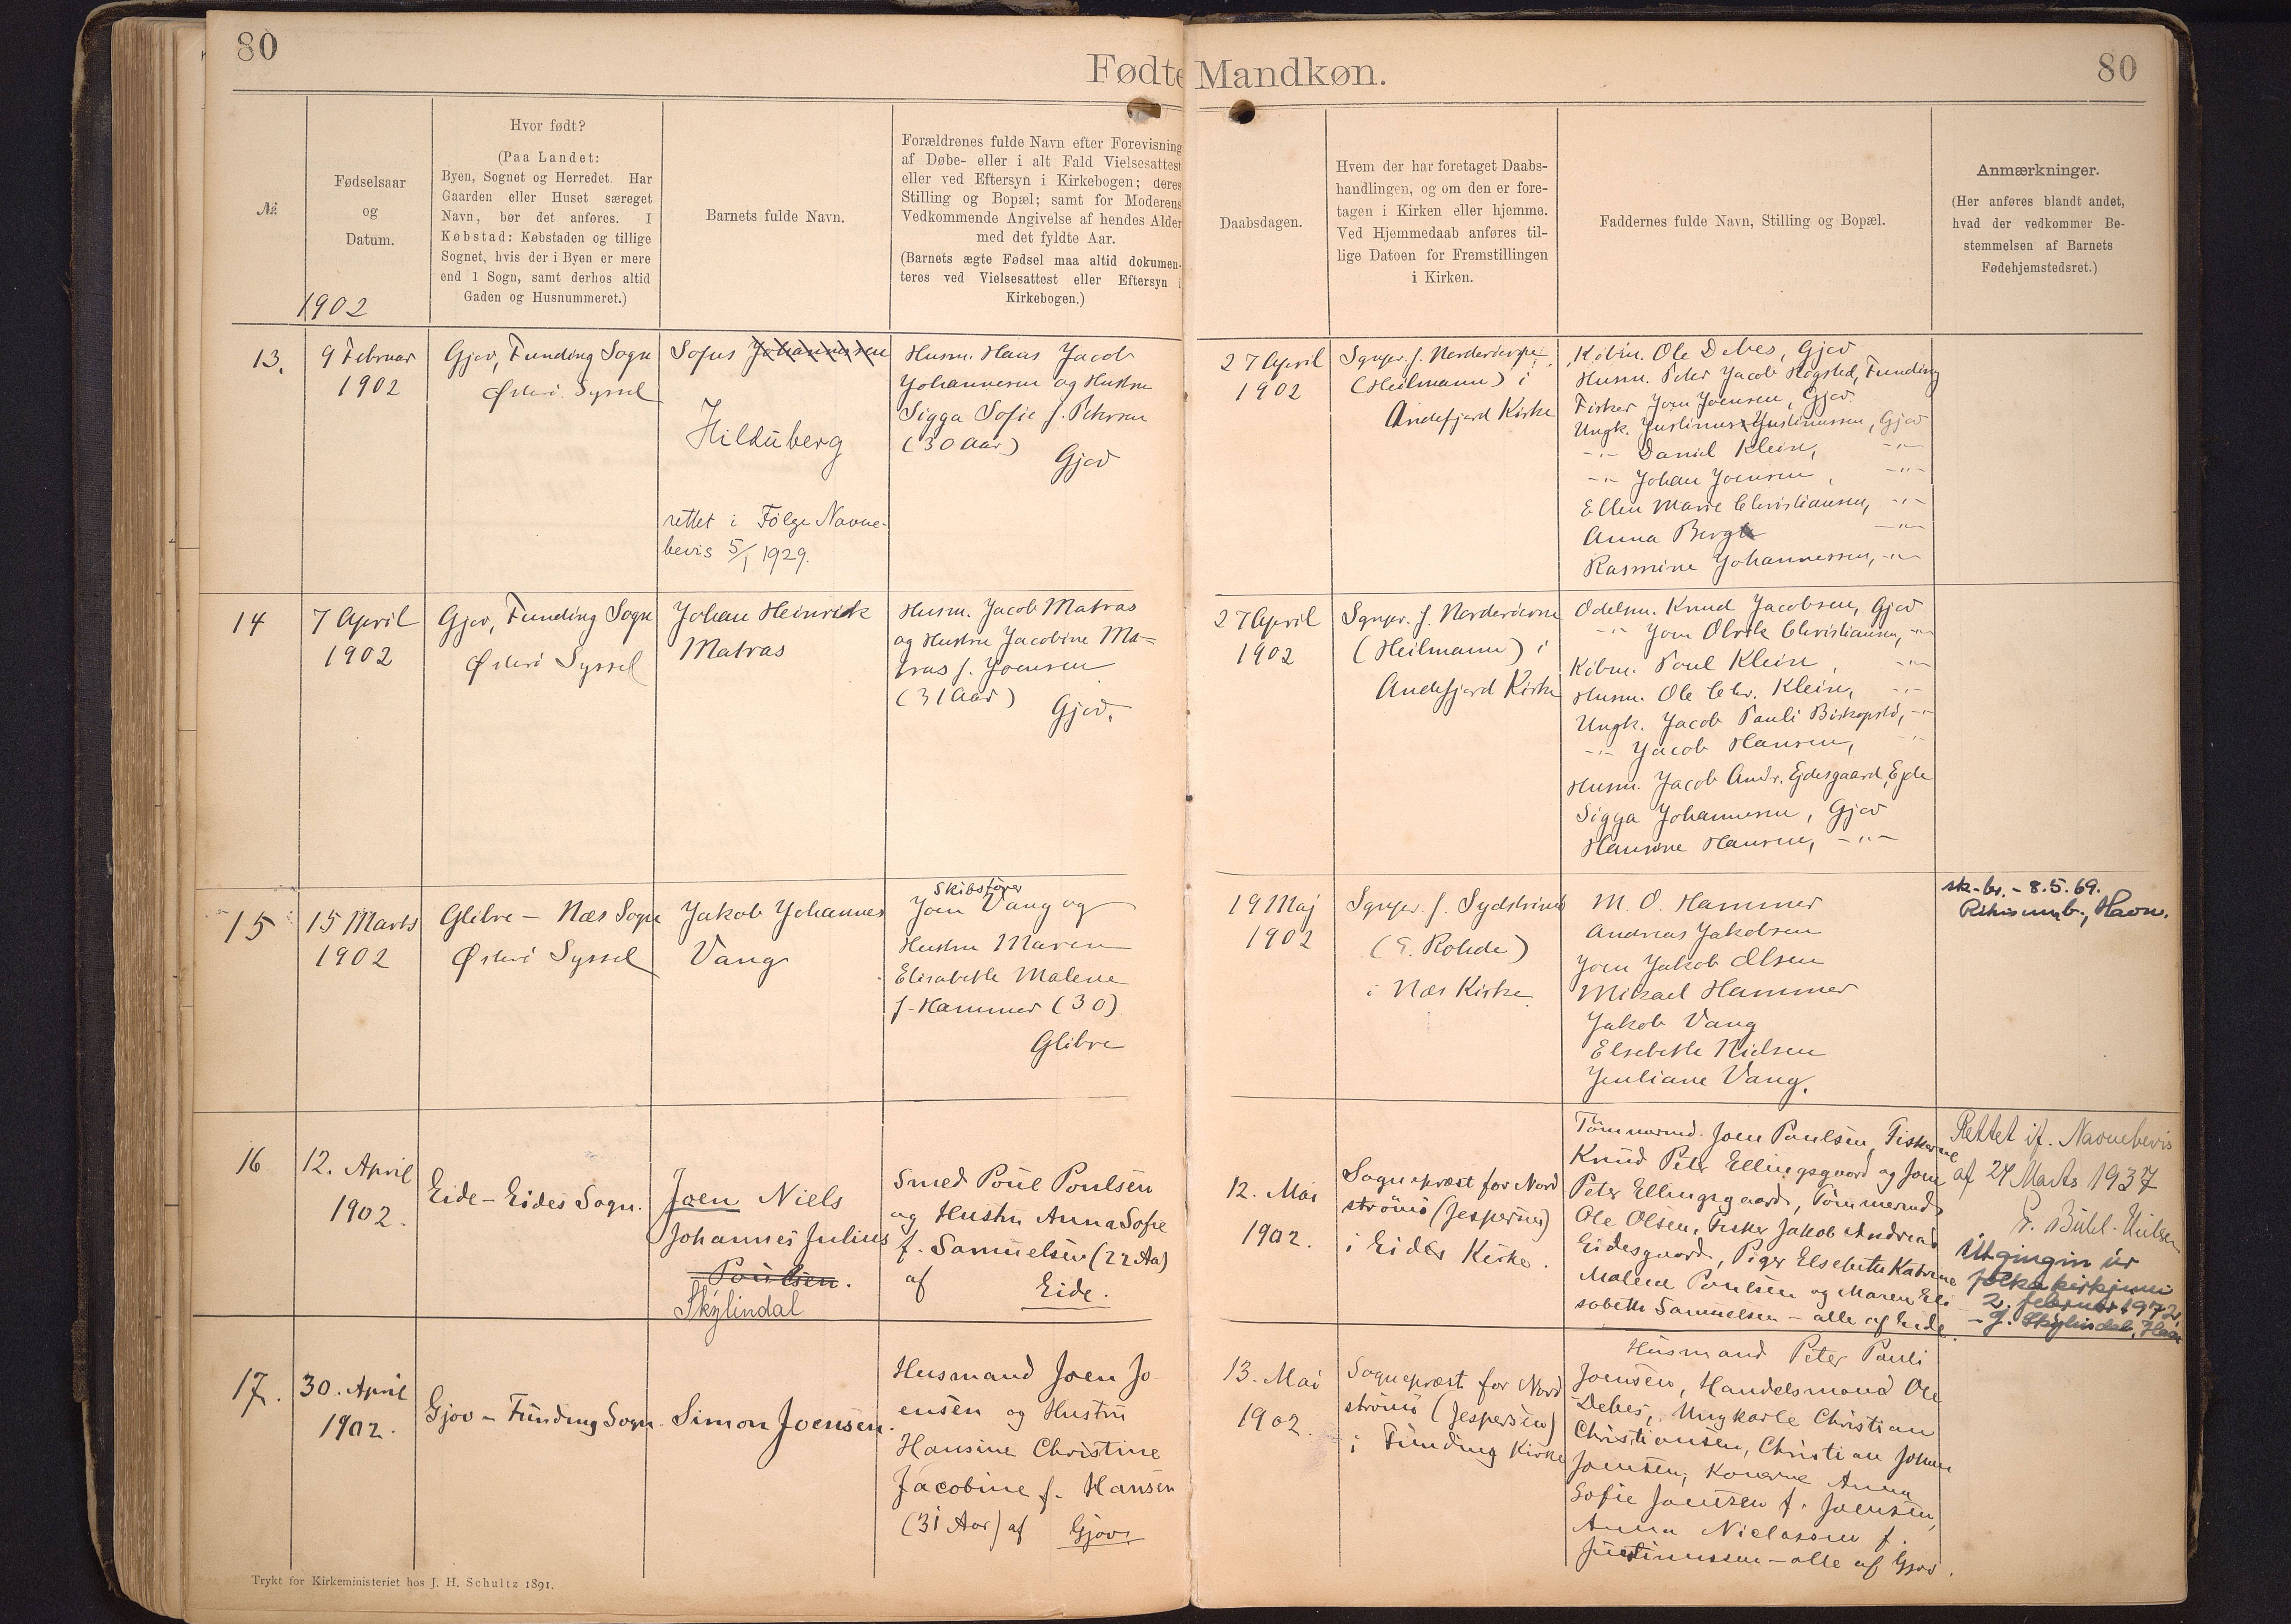 80
Fødte Mandkøn.
80
№
Fødselsaar
og
Datum.
1902
Hvor født?
(Paa Landet:
Byen, Sognet og Herredet. Har
Gaarden eller Huset særeget
Navn, bør det anføres. I
Købstad: Købstaden og tillige
Sognet, hvis der i Byen er mere
end 1 Sogn, samt derhos altid
Gaden og Husnummeret.)
Barnets fulde Navn.
Forældrenes fulde Navn efter Forevisning
af Døbe- eller i alt Fald Vielsesattest
eller ved Eftersyn i Kirkebogen; deres
Stilling og Bopæl; samt for Moderens
Vedkommende Angivelse af hendes Alder
med det fyldte Aar.
(Barnets ægte Fødsel maa altid dokumen-
teres ved Vielsesattest eller Eftersyn i
Kirkebogen.)
Daabsdagen.
Hvem der har foretaget Daabs-
handlingen, og om den er fore-
tagen i Kirken eller hjemme.
Ved Hjemmedaab anføres til-
lige Datoen for Fremstillingen
i Kirken.
Faddernes fulde Navn, Stilling og Bopæl.
Anmærkninger.
(Her anføres blandt andet,
hvad der vedkommer Be-
stemmelsen af Barnets
Fødehjemstedsret.)
13.
9 Februar
1902
Gjov, Funding Sogn
Østerö Syssel
Sofus Johannesen
Hilduberg
rettet i Følge Navne-
bevis 5/1 1929.
Husm. Hans Jacob
Johannesen og Hustru
Sigga Sofie f. Petersen
(30 Aar)
Gjov
27 April
1902
Sgnpr. f. Norderöerne
(Heilmann) i
Andefjord Kirke
Købm. Ole Debes, Gjov
Husm. Peter Jacob Høgsted, Funding
Fisker Joen Joensen, Gjov
Ungk. Justinus Justinussen, Gjov
-"- Daniel Klein, -"-
-"- Johan Joensen, -"-
Ellen Marie Christiansen, -"-
Anna Berg -"-
Rasmine Johannessen, -"-
14
7 April
1902
Gjov, Funding Sogn
Østerö Syssel
Johan Heinrik
Matras
Husm. Jacob Matras
og Hustru Jacobine Ma=
tras f. Joensen
(31 Aar)
Gjov.
27 April
1902
Sgnpr. f. Norderöerne
(Heilmann) i
Andefjord Kirke
Odelsm. Knud Jacobsen, Gjov
-"- Joen Olrik Christiansen, -"-
Købm. Poul Klein, -"-
Husm. Ole Chr. Klein, -"-
Ungk. Jacob Pauli Biskopstö, -"-
-"- Jacob Hansen, -"-
Husm. Jacob Andr. Ejdesgaard, Ejde
Sigga Johannesen, Gjov
Hansine Hansen, -"-
15
15 Marts
1902
Glibre - Næs Sogn
Østerö Syssel
Jakob Johannes
Vang
Skibsfører
Joen Vang og
Hustru Maren
Elisabeth Malene
f. Hammer (30)
Glibre
19 Maj
1902
Sgnpr. f. Sydströmö
(E. Rohde)
i Næs Kirke
M. O. Hammer
Andreas Jakobsen
Joen Jakob Olsen
Mikael Hammer
Jakob Vang
Elsebeth Nielsen
Juuliane Vang.
sk-br. - 8.5.69.
Havn.
16
12. April
1902.
Eide - Eides Sogn.
Joen Niels
Johannes Julius
Poulsen.
Skylindal
Smed Poul Poulsen
og Hustru Anna Sofie
f. Samuelsen (22 Aa)
af Eide.
12. Mai
1902.
Sognepræst for Nord
strömö (Jespersen)
i Eides Kirke.
Tömmermd. Joen Poulsen, Fiskerne
Knud Peter Ellingsgaard og Joen
Peter Ellingsgaard, Tömmermd
Ole Olsen, Fisker Jakob Andreas
Eidesgaard, Piger Elsebeth Katrine
Malene Poulsen og Maren Eli-
sabeth Samuelsen - alle af Eide.
Rettet if. Navnebevis
af 24 Marts 1937
Útgingin úr
fólkakirkjuni
2. februar 1972
- J. Skylindal, Havn
17.
30. April
1902.
Gjov - Funding Sogn.
Simon Joensen.
Husmand Joen Jo-
ensen og Hustru
Hansine Christine
Jacobine f. Hansen
(31 Aar) af Gjov.
13. Mai
1902.
Sognepræst for Nord
strömö (Jespersen)
i Funding Kirke
Husmand Peter Pauli
Joensen, Handelsmand Ole
Debes, Ungkarle Christian
Christiansen, Christian Johan
Joensen, Konerne Anna
Sofie Joensen f. Joensen,
Anna Niclassen f.
Justinussen - alle af Gjov.
Trykt for Kirkeministeriet hos J. H. Schultz 1891.